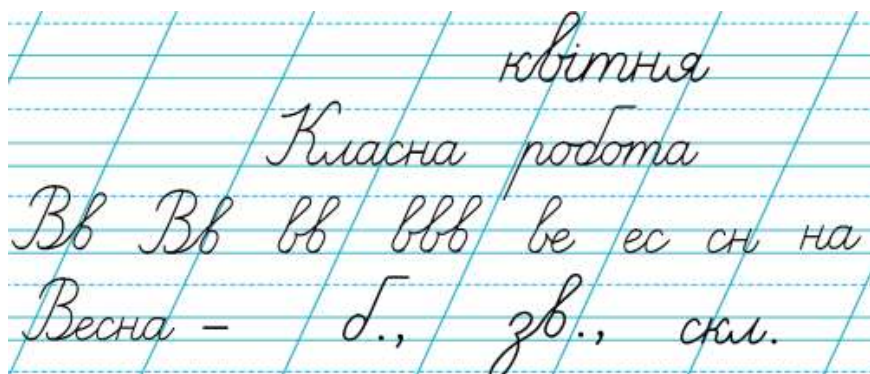 квітня
Класна робота
Вв Вв вв ввв ве ес сн на
Весна – б., зв., скл.